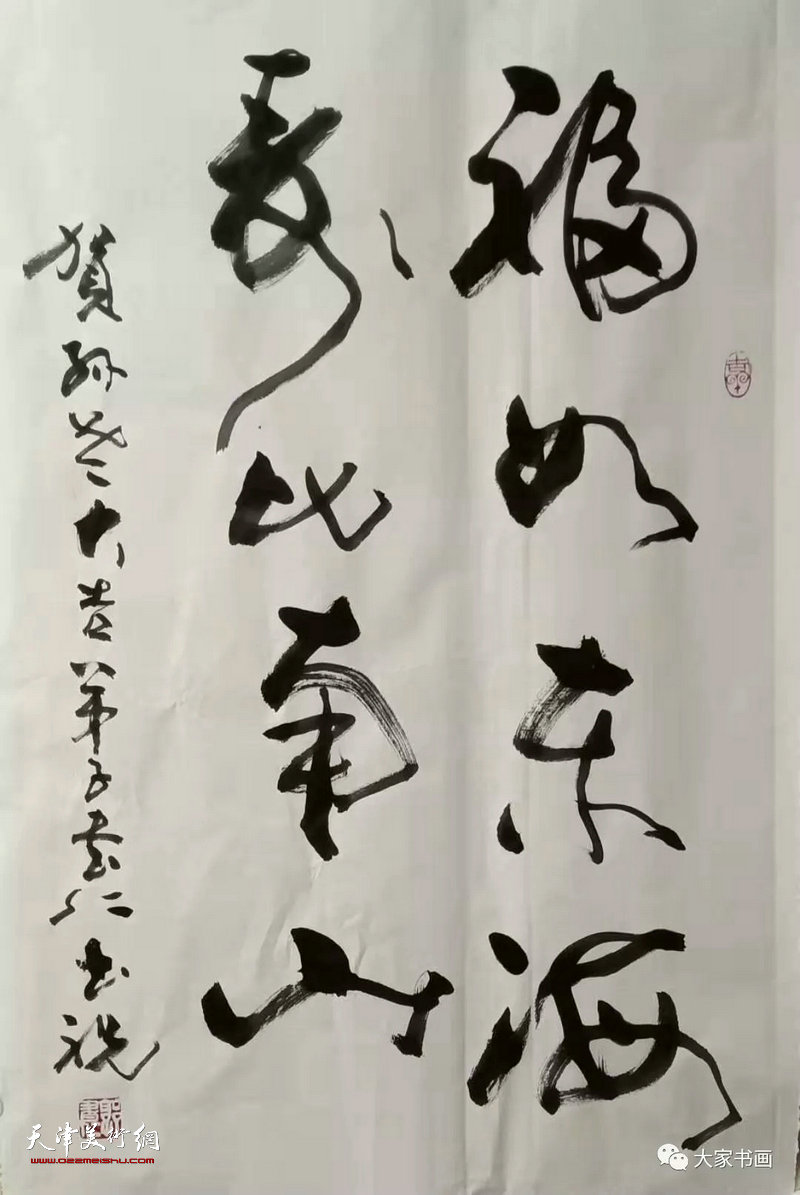 福如东海
寿比南山
贺孙老大吉弟子书祝
天津美術網
www.022meishu.com
大家书画